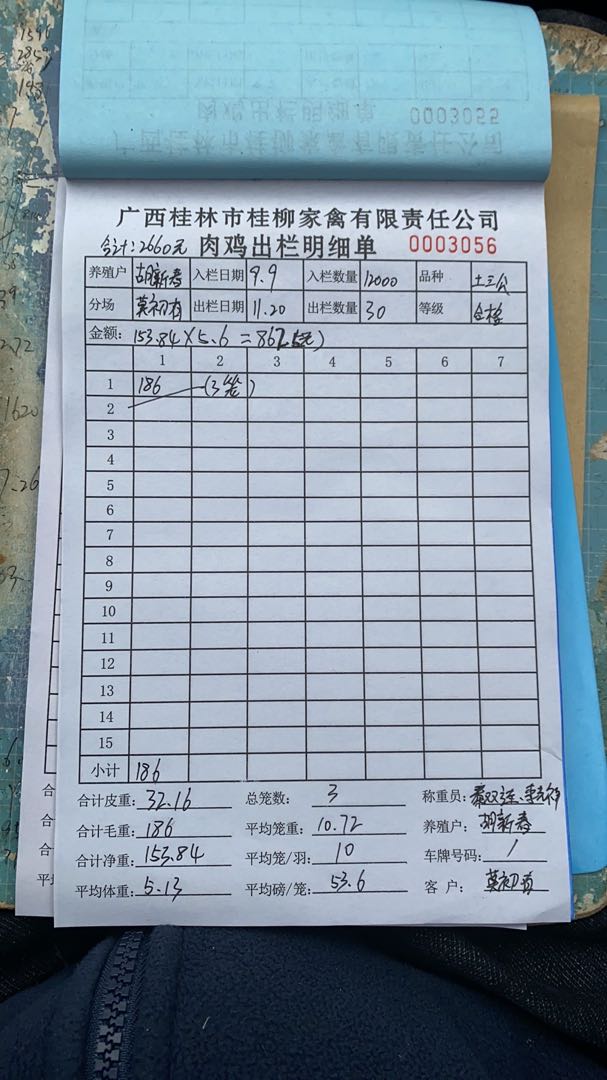 肉鸡出栏明细单 0003055
广西桂林市桂柳家禽有限责任公司
广西桂林市桂柳家禽有限责任公司
合计:2660元 肉鸡出栏明细单 0003056
养殖户 胡新春 入栏日期 9.9 入栏数量 12000 品种 土三
分场 莫初有 出栏日期 11.20 出栏数量 30 等级 合格
金额: 153.84×5.6=862
1 2 3 4 5 6 7
1 186 (3笼)
2
3
4
5
6
7
8
9
10
11
12
13
14
15
小计 186
合计皮重: 32.16 总笼数: 3 称重员:
合计毛重: 186 平均笼重: 10.72 养殖户: 胡新春
合计净重: 153.84 平均笼/羽: 10 车牌号码: /
平均体重: 5.13 平均磅/笼: 53.6 客户: 莫初有